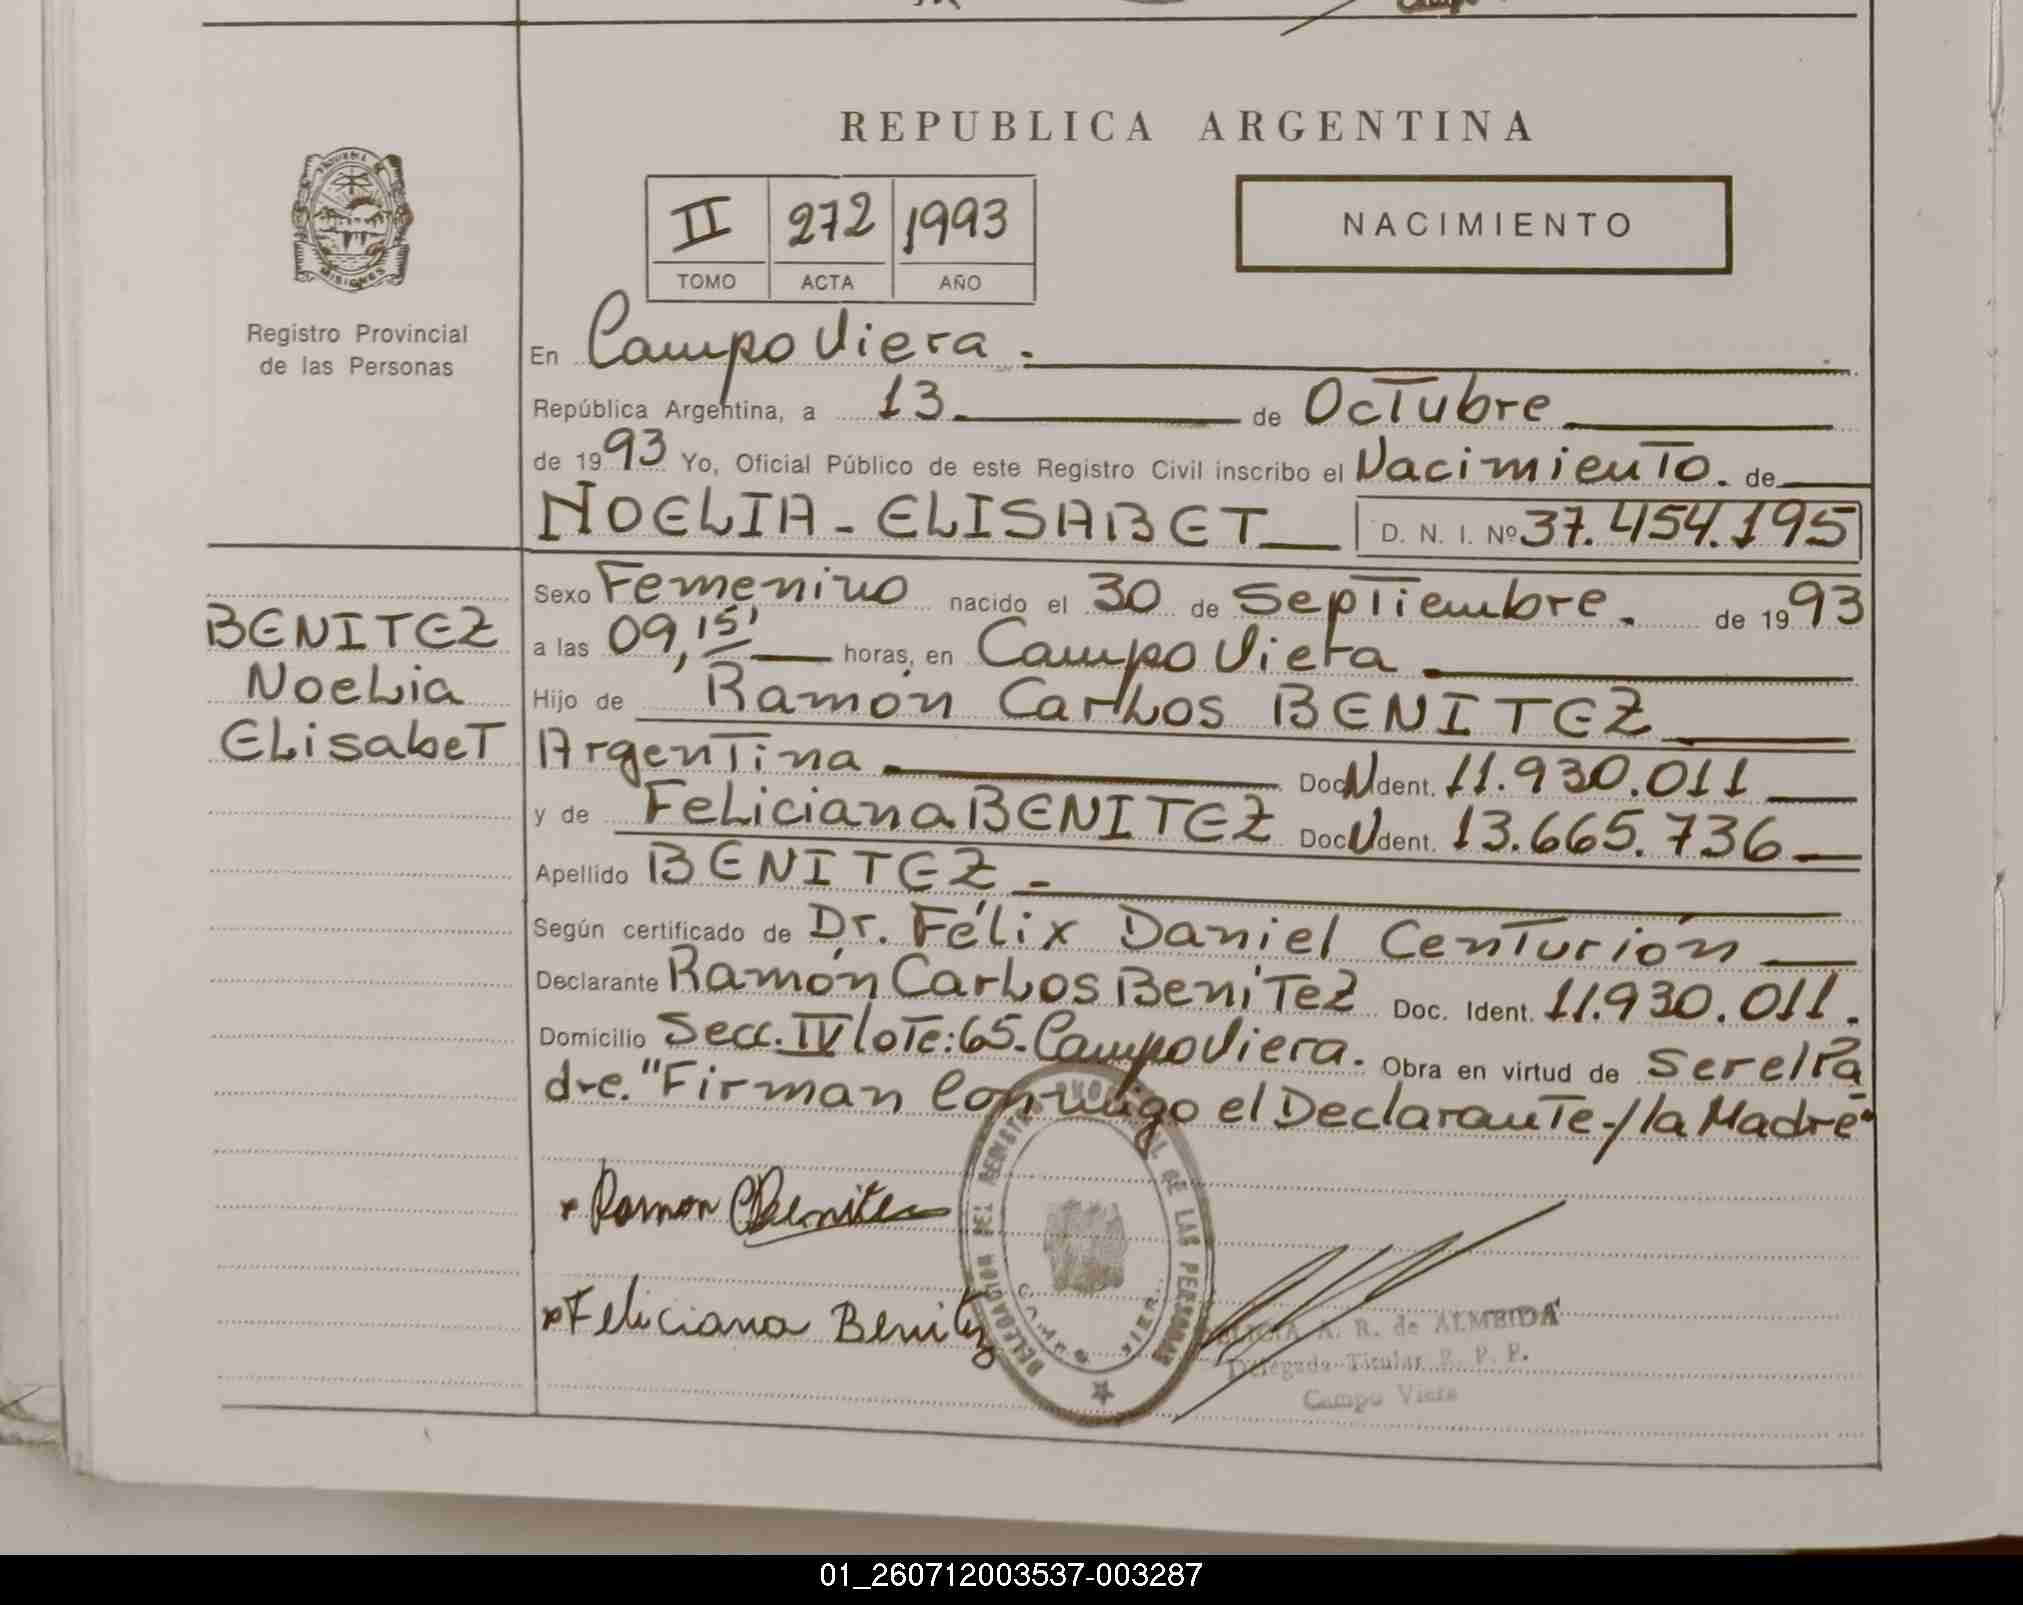 REPUBLICA ARGENTINA
II 272 1993
TOMO ACTA AÑO
NACIMIENTO
MISIONES
Registro Provincial
de las Personas
En Campo Viera.
República Argentina, a 13 de Octubre
de 1993 Yo, Oficial Público de este Registro Civil inscribo el Nacimiento. de
NOELIA - ELISABET D. N. I. Nº 37.454.195
BENITEZ
Noelia
Elisabet
Sexo Femenino nacido el 30 de Septiembre. de 1993
a las 09,15' horas, en Campo Viera
Hijo de Ramón Carlos BENITEZ
Argentina Doc N Ident. 11.930.011
y de Feliciana BENITEZ Doc N Ident. 13.665.736
Apellido BENITEZ -
Según certificado de Dr. Félix Daniel Centurión
Declarante Ramón Carlos Benitez Doc. Ident. 11.930.011.
Domicilio Secc. IV lote: 65. Campo Viera. Obra en virtud de Ser el Pa
dre. "Firman Conmigo el Declarante / la Madre"
Ramon C Benitez
Feliciana Benitez
DELEGACION DEL REGISTRO PROVINCIAL DE LAS PERSONAS
CAMPO VIERA
A. R. de ALMEIDA
Delegada Titular R. P. P.
Campo Viera
01_260712003537-003287